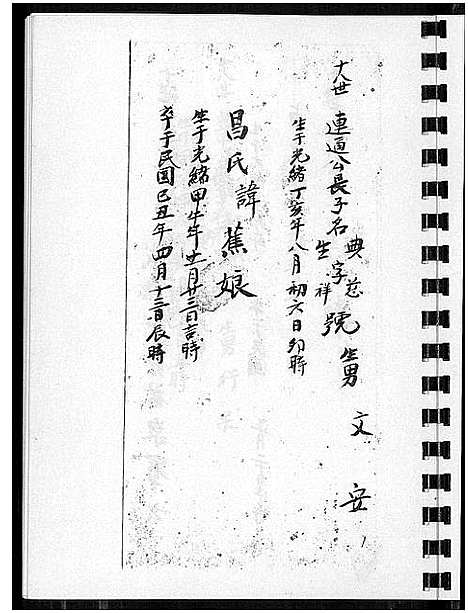 十八世 連通公長子名典慈字生祥號 生男 文安
生于光緒丁亥年八月初六日卯時
昌氏諱蕉娘
生于光緒甲午年十一月廿三日吉時
卒于民國己丑年四月十三日辰時